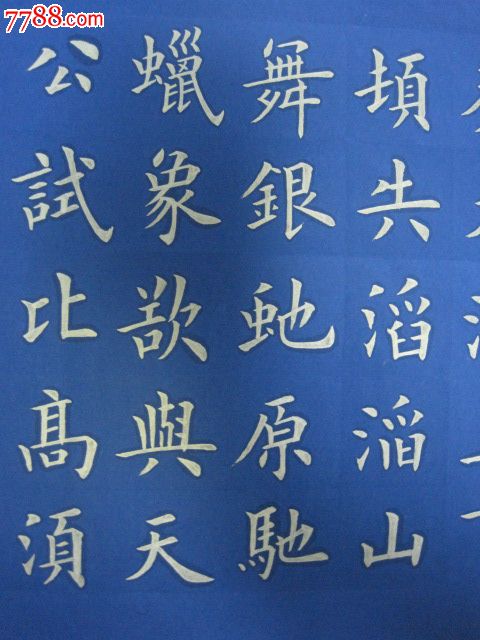 7788.com
頓失滔滔山
舞銀虵原馳
蠟象欲與天
公試比髙須